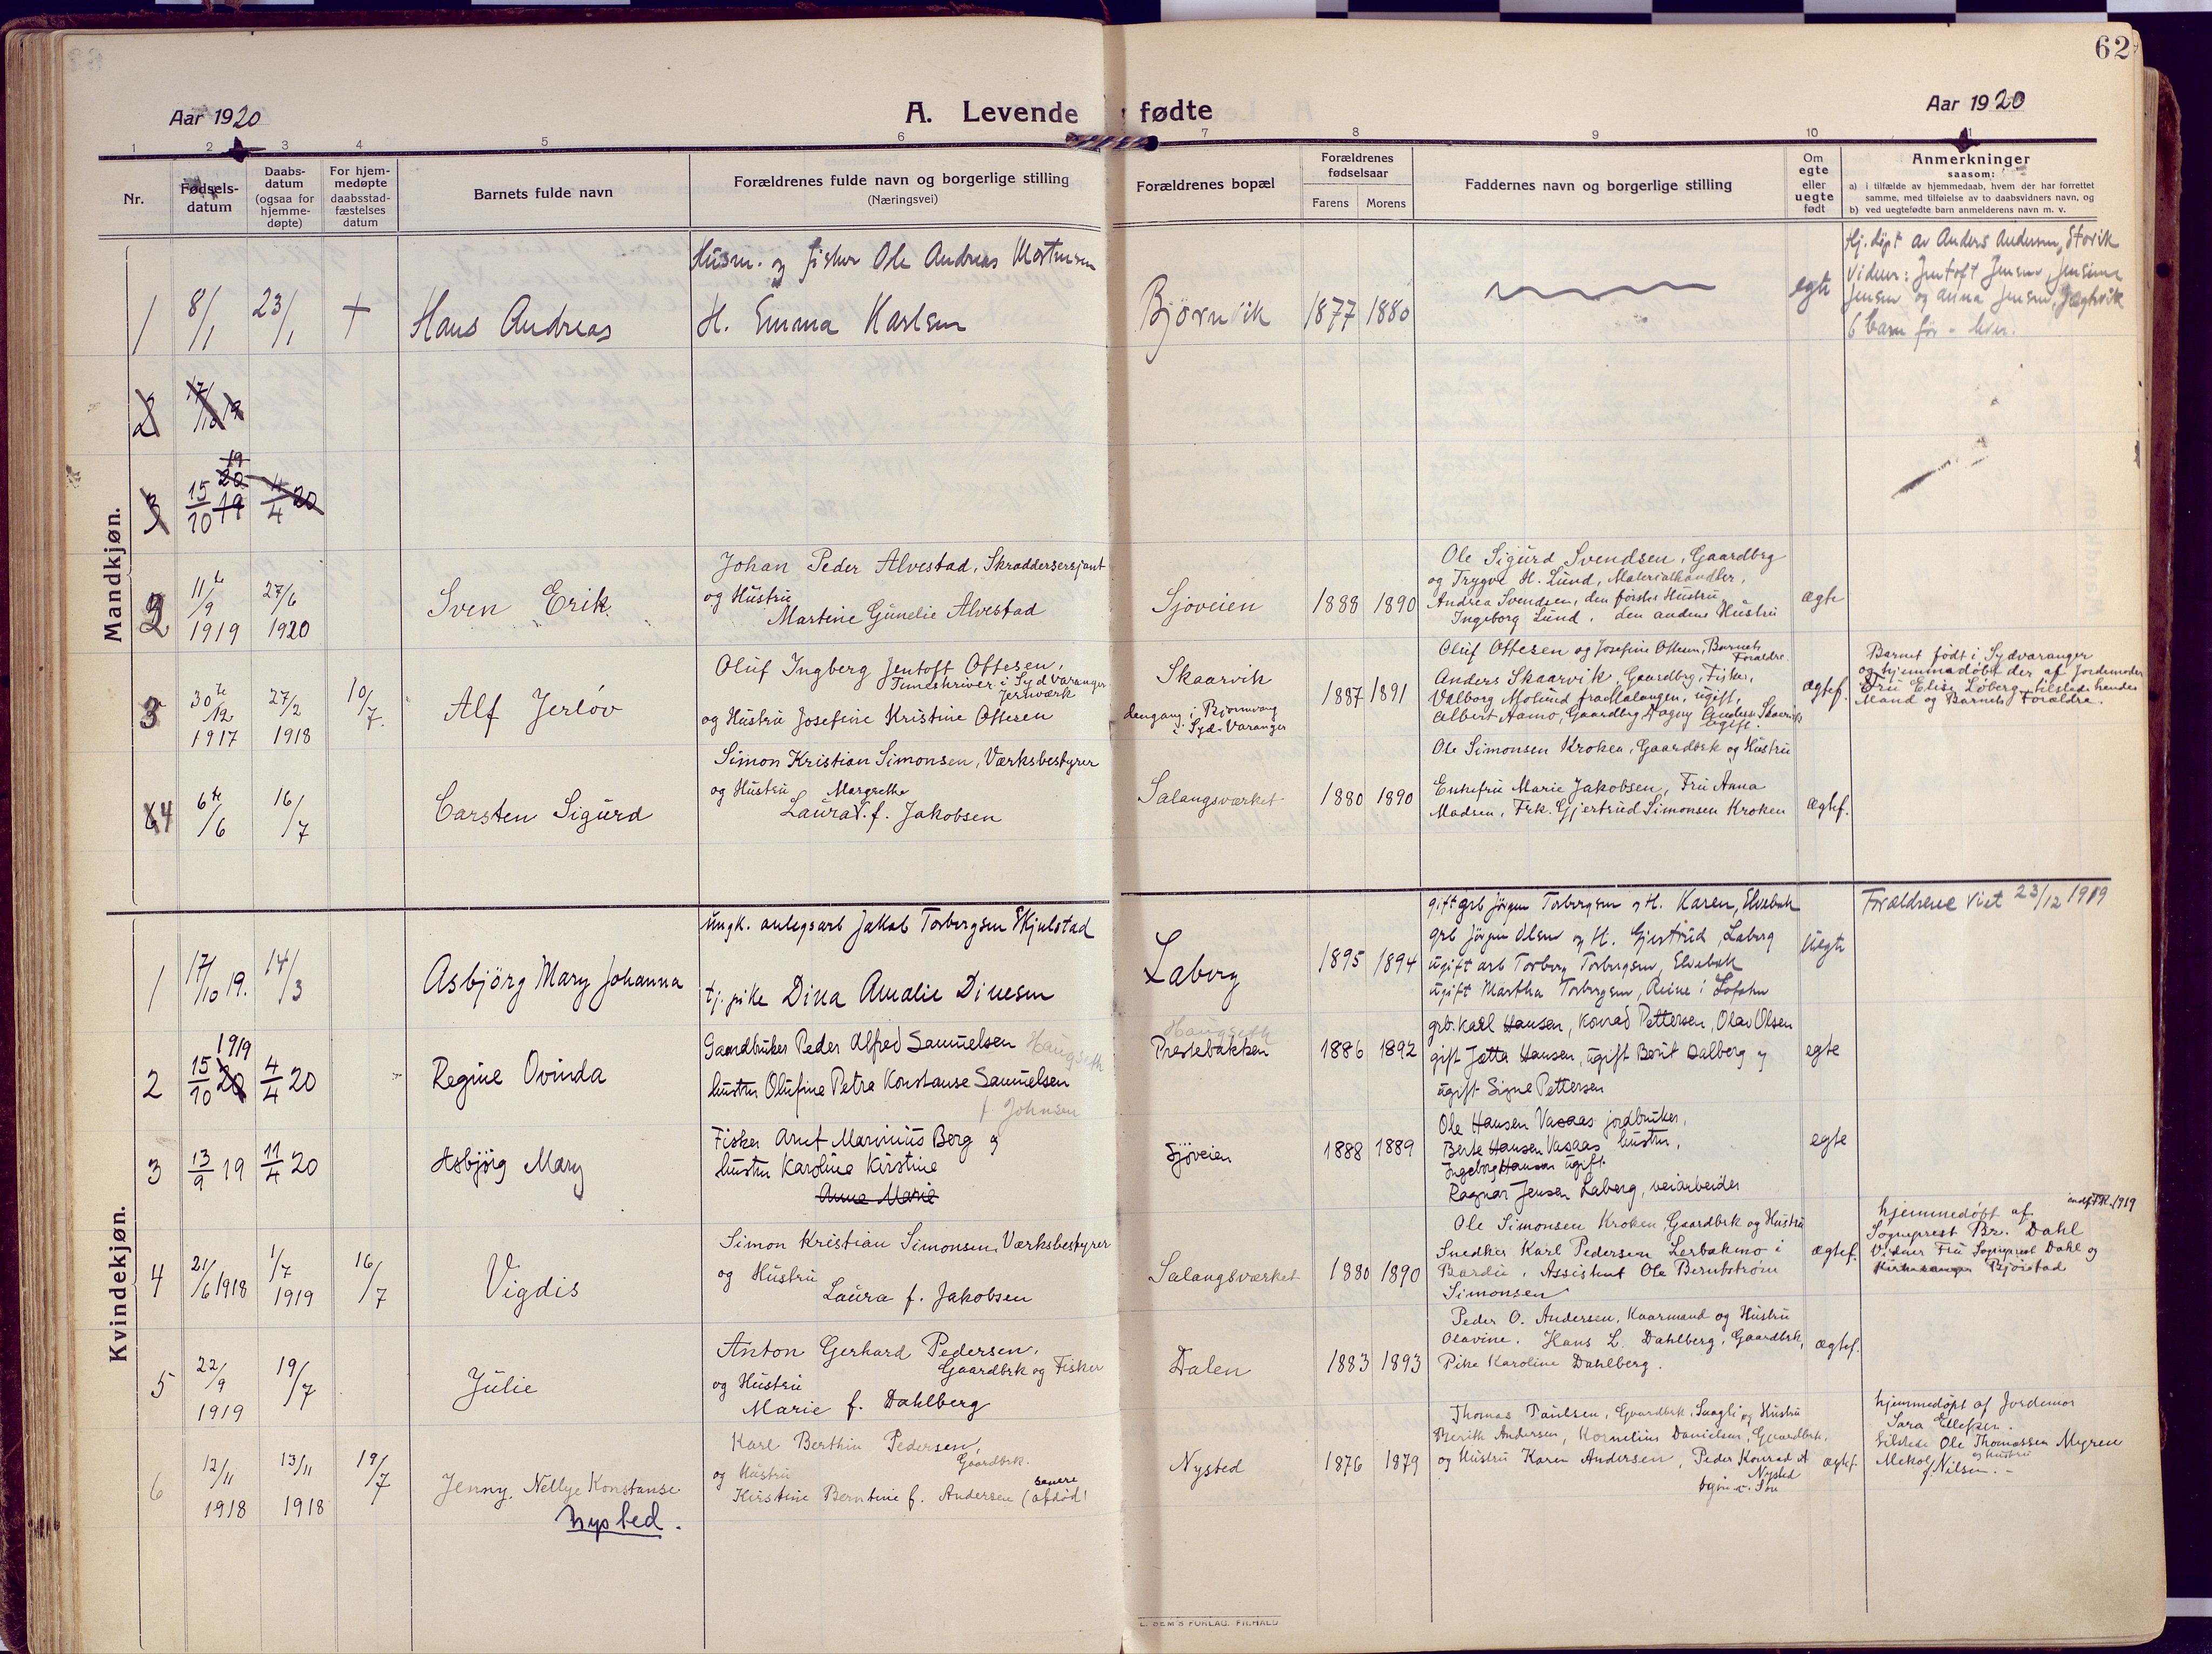 62
Aar 1920
A. Levende fødte
Aar 1920
1 2 3 4 5 6 7 8 9 10 11
Nr.
Fødsels-datum
Daabs-datum (ogsaa for hjemme-døpte)
For hjem-medøpte daabsstad-fæstelses datum
Barnets fulde navn
Forældrenes fulde navn og borgerlige stilling
(Næringsvei)
Forældrenes bopæl
Forældrenes fødselsaar
Farens Morens
Faddernes navn og borgerlige stilling
Om egte eller uegte født
Anmerkninger
saasom:
a) i tilfælde av hjemmedaab, hvem der har forrettet
samme, med tilføielse av to daabsvidners navn, og
b) ved uegtefødte barn anmelderens navn m. v.
Mandkjøn.
1 8/1 23/1 + Hans Andreas
Husm. og fisker Ole Andreas Mortensen
H. Emma Karlsen
Bjørnvik 1877 1880
egte
Hj. døpt av Anders Andersen, Storvik
Vidner: Jentoft Jensen, Jensine
Jensen og Anna Jensen, Jægtvik
6 barn før - lever.
2 17/10 19
3 15/10 19 20 19 4/4 20
2 11te/9 1919 27/6 1920 Sven Erik
Johan Peder Alvestad, Skræddersersjant
og Hustru
Martine Gunelie Alvestad
Sjøveien 1888 1890
Ole Sigurd Svendsen, Gaardbrg
og Trygve H. Lund, Materialhandler,
Andrea Svendsen, den førstes Hustru
Ingeborg Lund, den andens Hustru
ægte
3 30te/12 1917 27/2 1918 10/7. Alf Jerløv
Oluf Ingberg Jentoft Ottesen,
Timeskriver i Sydvaranger
Jernværk
og Hustru Josefine Kristine Ottesen
Skaarvik
dengang i Bjørnvang
i Syd-Varanger
1887 1891
Oluf Ottesen og Josefine Ottesen, Barnets
Forældre.
Anders Skaarvik, Gaardbrg, Fisker,
Valborg Moland fra Malangen, ugift,
Albert Aamo, Gaardbrg Dagny Anders. Skaarvik
ugift
ægtef.
Barnet født i Sydvaranger
og hjemmedøbt der af Jordemoder
Fru Elise Løberg, tilstede hendes
Mand og Barnets Forældre.
4 6te/6 16/7 Carsten Sigurd
Simon Kristian Simonsen, Værksbestyrer
og Hustru Margrethe
Laura f. Jakobsen
Salangsværket 1880 1890
Ole Simonsen Kroken, Gaardbrk og Hustru
Enkefru Marie Jakobsen, Fru Anna
Madsen, Frk. Gjertrud Simonsen Kroken
ægtef.
Kvindekjøn.
1 17/10 19. 14/3 Asbjörg Mary Johanna
Ungk. anlegsarb Jakob Torbergsen Skjelstad
tj. pike Dina Amalie Dinesen
Laberg 1895 1894
gift grb Jörgen Torbergsen og H. Karen, Elvebak
grb Jörgen Olsen og H. Gjertrud, Laberg
ugift arb Torberg Torbergsen, Elvebak
ugift Martha Torbergsen, Reine i Lofoten
Uegte
Forældrene viet 23/12 1919
2 1919 15/10 20 4/4 20 Regine Ovinda
Gaardbruker Peder Alfred Samuelsen Haugseth
hustru Olufine Petra Konstanse Samuelsen
f. Johnsen
Haugseth
Prestebakken 1886 1892
grb. Karl Hansen, Konrad Pettersen, Olav Olsen
gift Jetta Hansen, ugift Berit Dalberg og
ugift Signe Pettersen
egte
3 13/9 19 11/4 20 Asbjörg Mary
Fisker Arnt Marinius Berg og
hustru Karoline Kirstine
Anne Marie
Sjøveien 1888 1889
Ole Hansen Vasaas jordbruker,
Berte Hansen Vasaas hustru,
Ingeborg Hansen ugift.
Ragnar Jensen Laberg, veiarbeider
egte
4 21/6 1918 1/7 1919 16/7 Vigdis
Simon Kristian Simonsen Værksbestyrer
og Hustru
Laura f. Jakobsen
Salangsværket 1880 1890
Ole Simonsen Kroken, Gaardbrk og Hustru
Snedker Karl Pedersen Lerbakmo i
Bardu, Assistent Ole Berntstrøm
Simonsen
ægtef.
hjemmedøbt af
Sogneprest Br. Dahl
Vidner Fru Sogneprest Dahl og
Kirkesanger Bjørstad
5 22/9 1919 19/7 Julie
Anton Gerhard Pedersen,
Gaardbrk og Fisker
og Hustru
Marie f. Dahlberg
Dalen 1883 1893
Peder O. Andersen, Kaarmand og Hustru
Olavine. Hans L. Dahlberg, Gaardbrk,
Pike Karoline Dahlberg.
ægtef.
6 12/11 1918 13/11 1918 19/7 Jenny. Nellye Konstanse
Nysted.
Karl Berthin Pedersen,
Gaardbrk.
og Hustru
Kirstine Berntine f. Andersen (senere afdød)
Nysted 1876 1879
Thomas Paulsen, Gaardbrk, Saagli og Hustru
Berith Andersen, Kornelius Danielsen, Gaardbrk,
og Hustru Karen Andersen, Peder Konrad
Nysted
ægtef.
hjemmedøpt af Jordemor
Sara Ellefsen.
tilstede Ole Thomassen Myren
og Hustru
Mekol f Nilsen.
E. SEM'S FORLAG, F.HALD